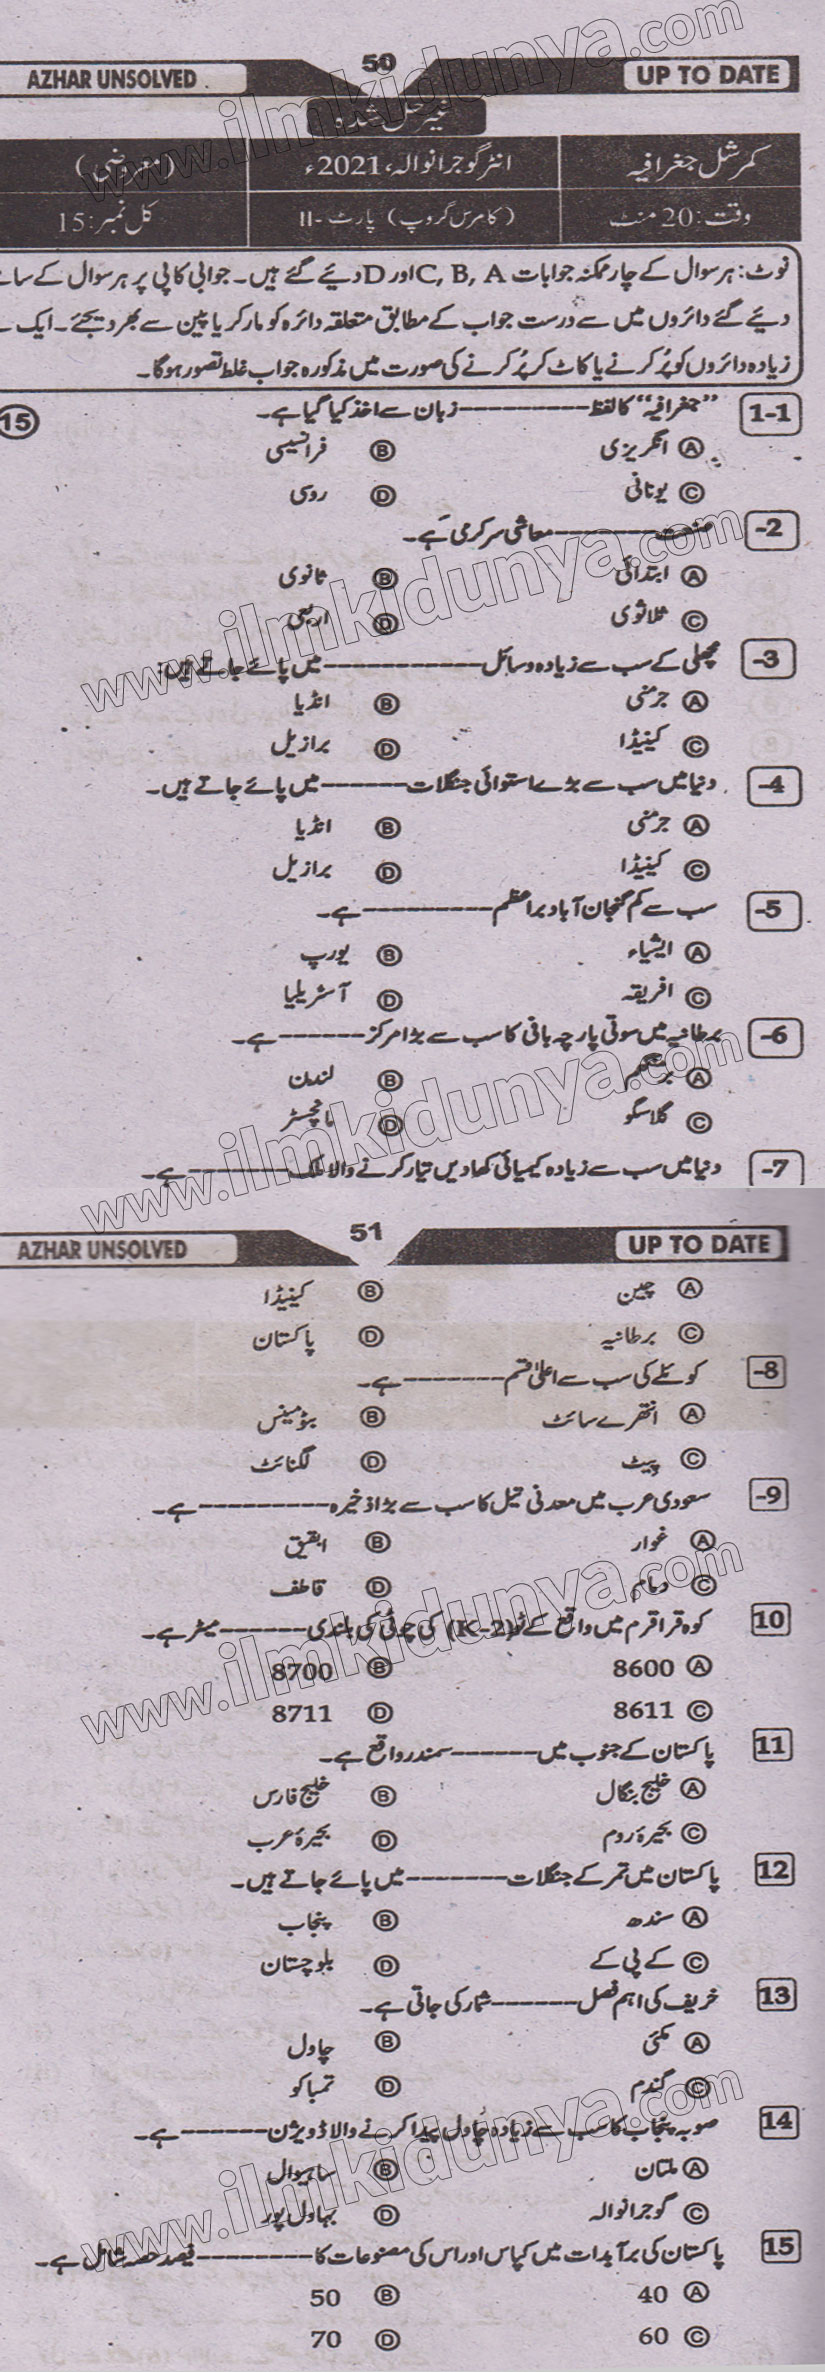 50
AZHAR UNSOLVED UP TO DATE
غیر حل شدہ
کمرشل جغرافیہ انٹر گوجرانوالہ، 2021ء (معروضی)
وقت: 20 منٹ (کامرس گروپ) پارٹ-II کل نمبر: 15
نوٹ: ہر سوال کے چار ممکنہ جوابات C, B, A اور D دیئے گئے ہیں۔ جوابی کاپی پر ہر سوال کے سامنے
دیئے گئے دائروں میں سے درست جواب کے مطابق متعلقہ دائرہ کو مارکر یا پین سے بھر دیجئے۔ ایک سے
زیادہ دائروں کو پُر کرنے یا کاٹ کر پُر کرنے کی صورت میں مذکورہ جواب غلط تصور ہوگا۔
1-1 "جغرافیہ" کا لفظ ---------- زبان سے اخذ کیا گیا ہے۔ 15
A انگریزی B فرانسیسی
C یونانی D روسی
-2 صنعت ---------- معاشی سرگرمی ہے۔
A ابتدائی B ثانوی
C ثلاثوی D اربعی
-3 مچھلی کے سب سے زیادہ وسائل ---------- میں پائے جاتے ہیں:
A جرمنی B انڈیا
C کینیڈا D برازیل
-4 دنیا میں سب سے بڑے استوائی جنگلات ------- میں پائے جاتے ہیں۔
A جرمنی B انڈیا
C کینیڈا D برازیل
-5 سب سے کم گنجان آباد براعظم ---------- ہے۔
A ایشیاء B یورپ
C افریقہ D آسٹریلیا
-6 برطانیہ میں سوتی پارچہ بافی کا سب سے بڑا مرکز ------- ہے۔
A برمنگھم B لندن
C گلاسگو D مانچسٹر
-7 دنیا میں سب سے زیادہ کیمیائی کھادیں تیار کرنے والا ملک -------- ہے۔
51
AZHAR UNSOLVED UP TO DATE
A چین B کینیڈا
C برطانیہ D پاکستان
-8 کوئلے کی سب سے اعلیٰ قسم -------- ہے۔
A انتھرے سائٹ B بٹومینس
C پیٹ D لگنائٹ
-9 سعودی عرب میں معدنی تیل کا سب سے بڑا ذخیرہ ---------- ہے۔
A غوار B ابقیق
C دمام D قاطف
10 کوہ قراقرم میں واقع کے ٹو (K-2) کی چوٹی کی بلندی ------- میٹر ہے۔
A 8600 B 8700
C 8611 D 8711
11 پاکستان کے جنوب میں ------- سمندر واقع ہے۔
A خلیج بنگال B خلیج فارس
C بحیرۂ روم D بحیرۂ عرب
12 پاکستان میں تمر کے جنگلات -------- میں پائے جاتے ہیں۔
A سندھ B پنجاب
C کے پی کے D بلوچستان
13 خریف کی اہم فصل ------- شمار کی جاتی ہے۔
A مکئی B چاول
C گندم D تمباکو
14 صوبہ پنجاب کا سب سے زیادہ چاول پیدا کرنے والا ڈویژن ------- ہے۔
A ملتان B ساہیوال
C گوجرانوالہ D بہاول پور
15 پاکستان کی برآمدات میں کپاس اور اس کی مصنوعات کا --------- فیصد حصہ شامل ہے۔
A 40 B 50
C 60 D 70
www.ilmkidunya.com
www.ilmkidunya.com
www.ilmkidunya.com
www.ilmkidunya.com
www.ilmkidunya.com